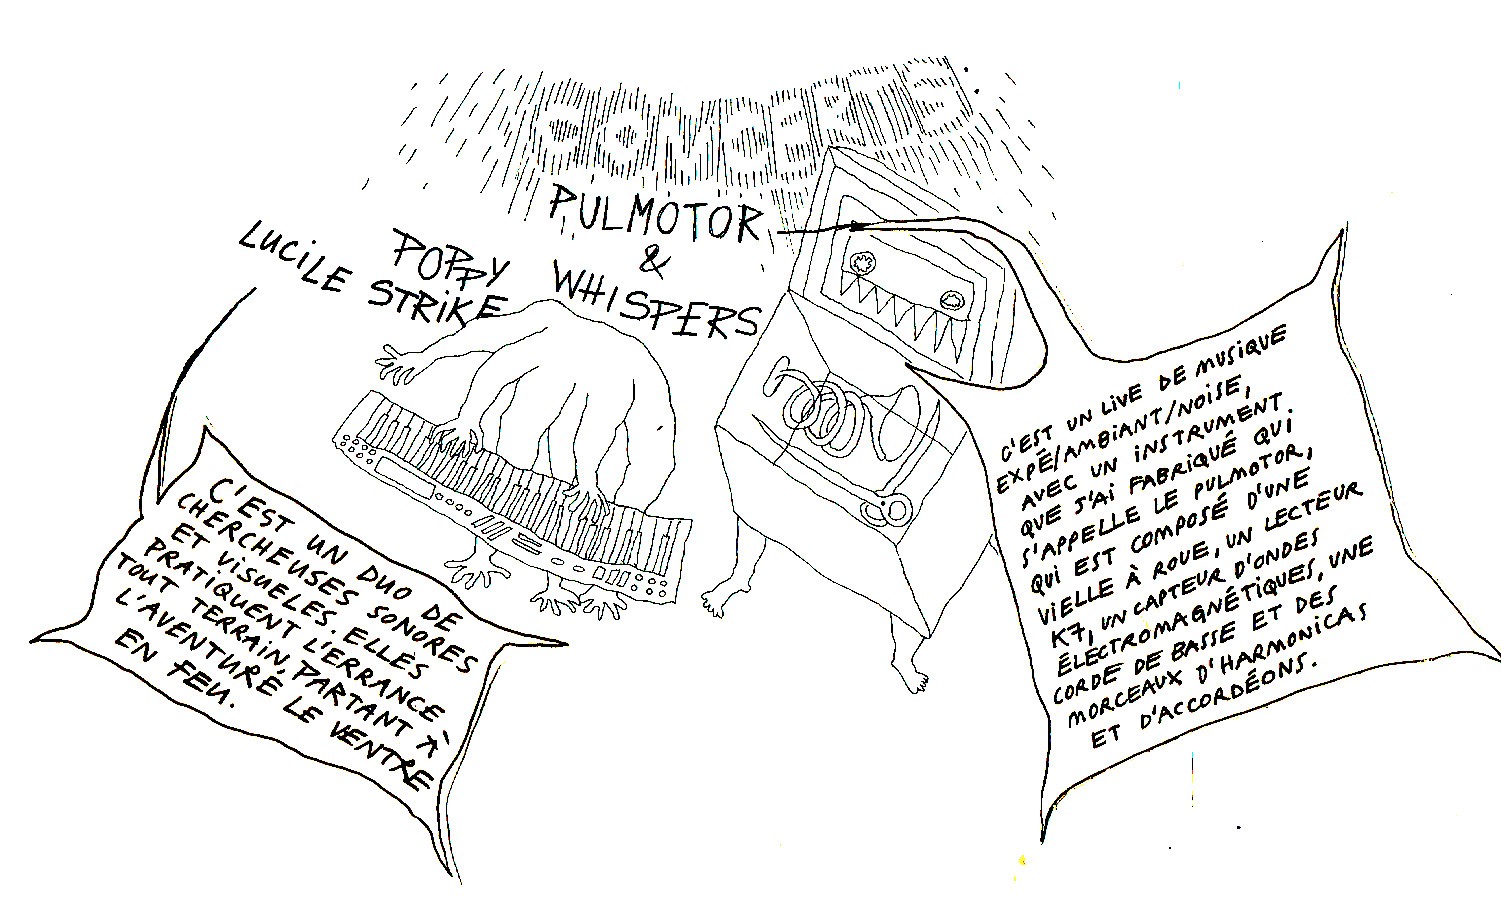 CONCERTS
PULMOTOR
&
LUCILE STRIKE
POPPY WHISPERS
C'EST UN DUO DE
CHERCHEUSES SONORES
ET VISUELES. ELLES
PRATIQUENT L'ERRANCE
TOUT TERRAIN, PARTANT À
L'AVENTURE LE VENTRE
EN FEU.
C'EST UN LIVE DE MUSIQUE
EXPÉ/AMBIANT/NOISE,
AVEC UN INSTRUMENT
QUE J'AI FABRIQUÉ QUI
S'APPELLE LE PULMOTOR,
QUI EST COMPOSÉ D'UNE
VIELLE À ROUE, UN LECTEUR
K7, UN CAPTEUR D'ONDES
ÉLECTROMAGNÉTIQUES, UNE
CORDE DE BASSE ET DES
MORCEAUX D'HARMONICAS
ET D'ACCORDÉONS.